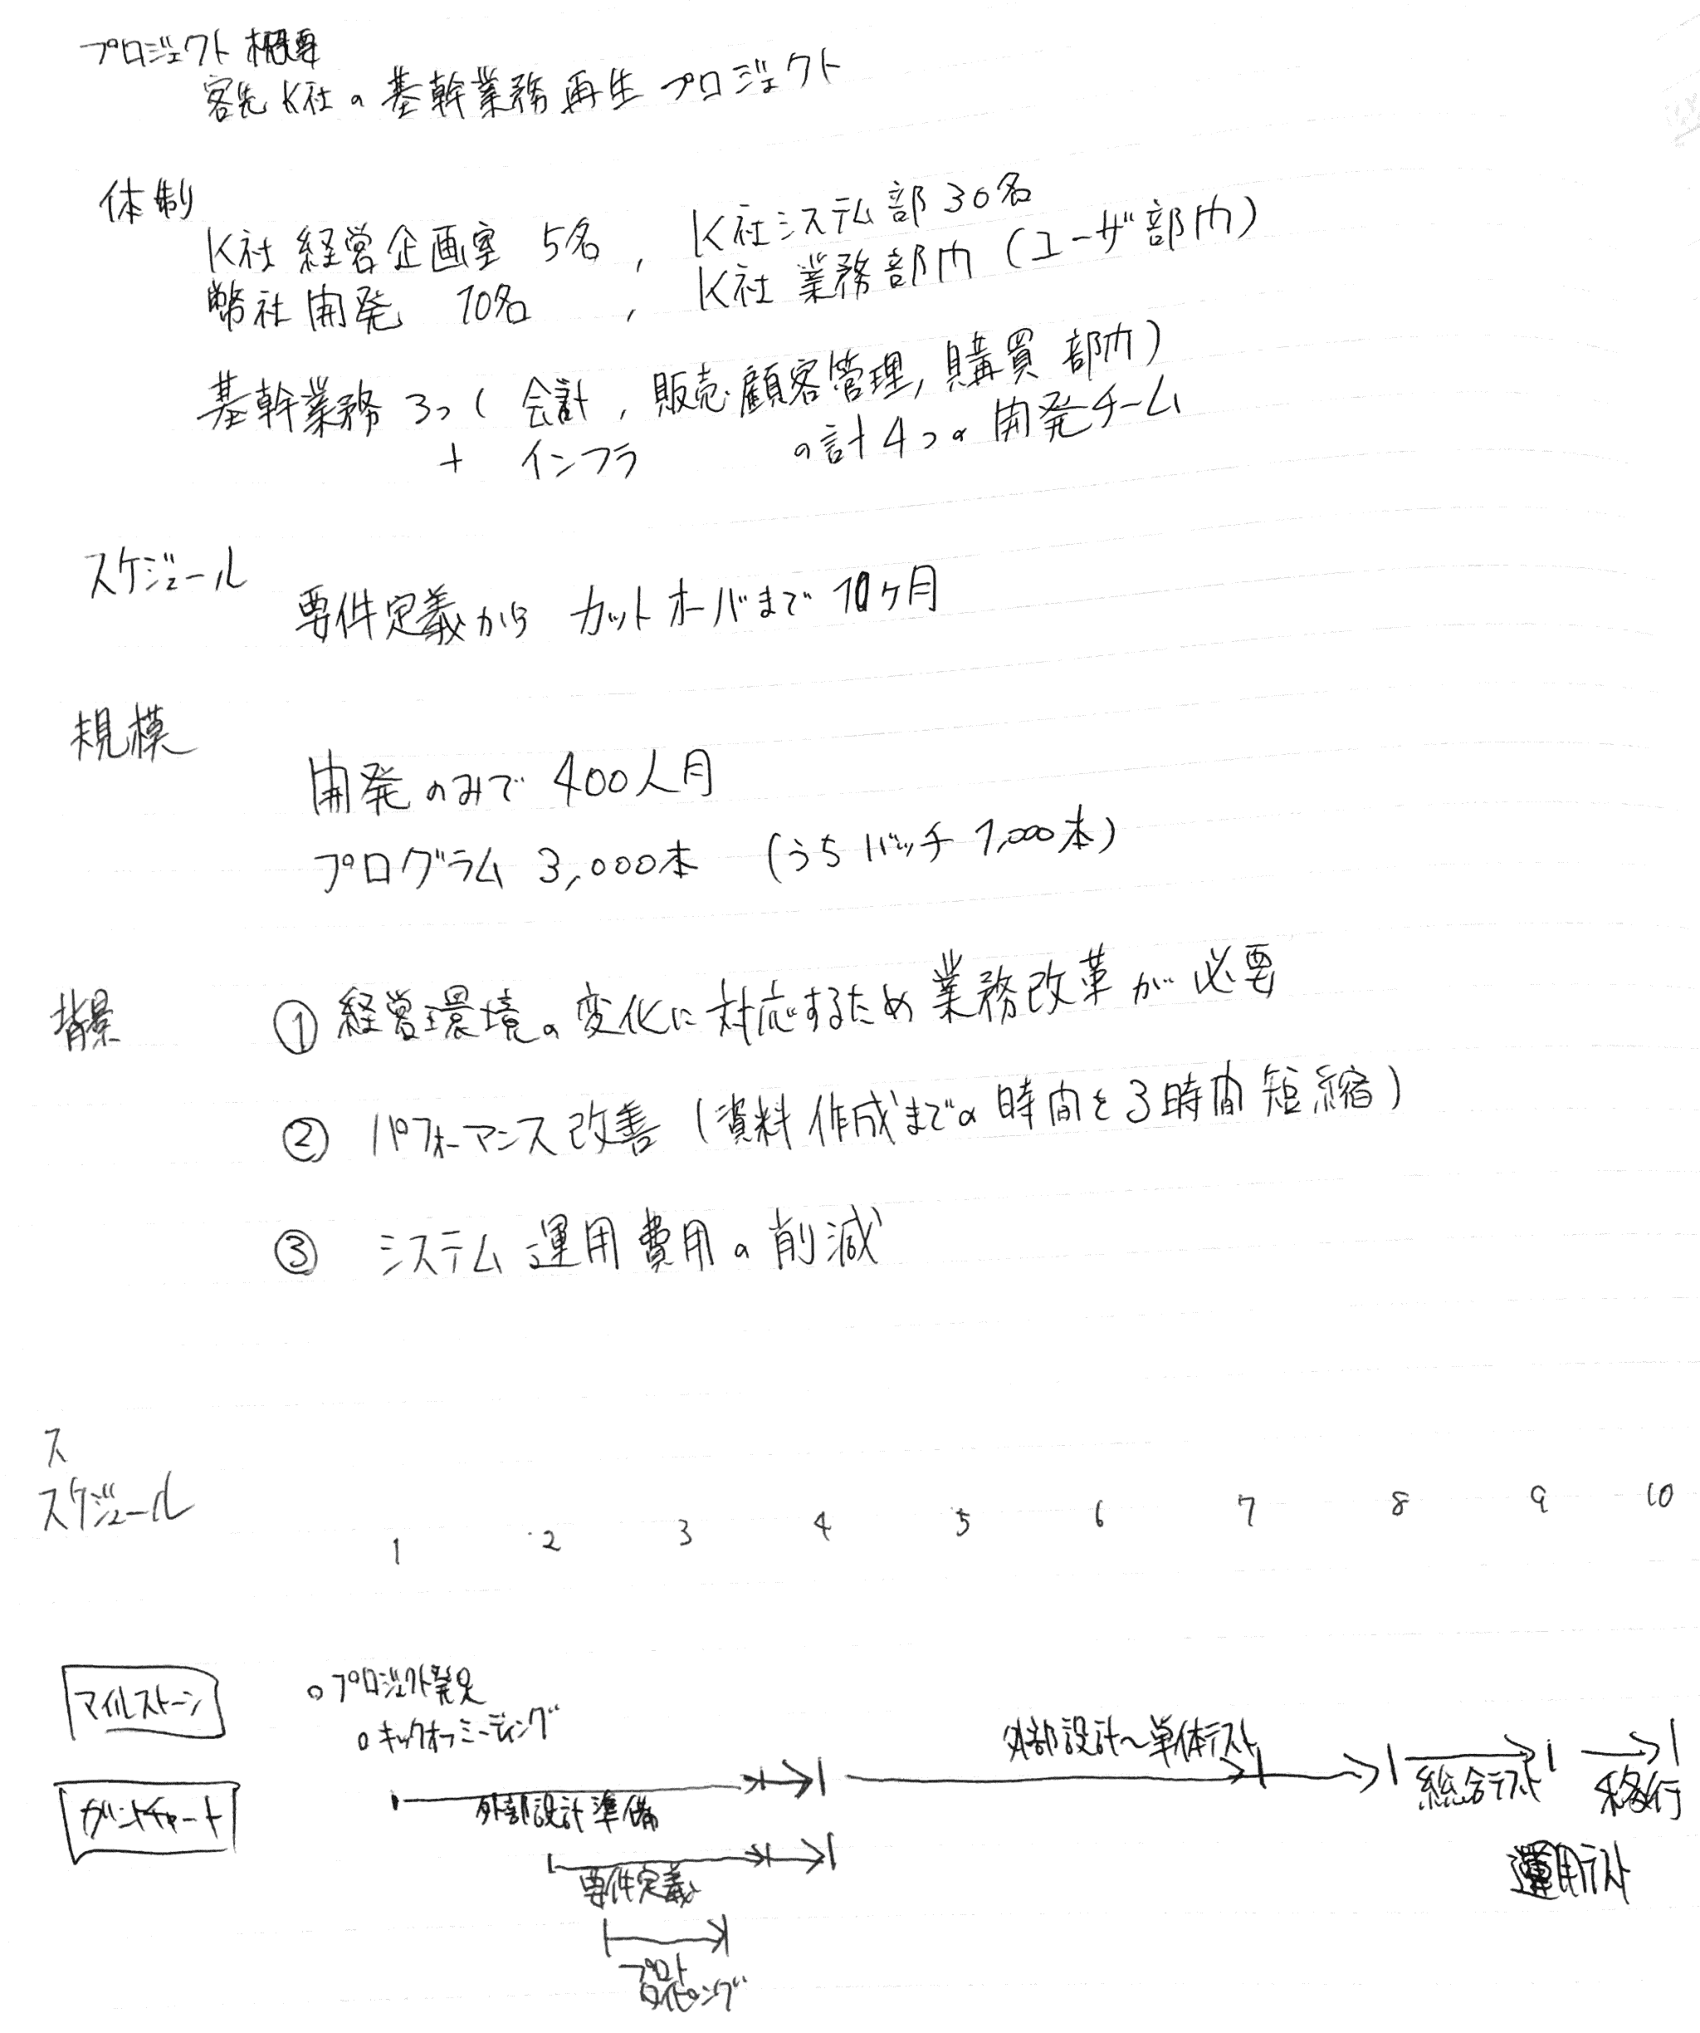 プロジェクト概要
客先K社の基幹業務再生プロジェクト
体制
K社経営企画室 5名, K社システム部30名
弊社開発 70名, K社業務部門(ユーザ部門)
基幹業務3つ(会計, 販売・顧客管理, 購買部門)
+ インフラ の計4つの開発チーム
スケジュール
要件定義からカットオーバまで10ヶ月
規模
開発のみで400人月
プログラム 3,000本 (うちバッチ1,000本)
背景
① 経営環境の変化に対応するため業務改革が必要
② パフォーマンス改善(資料作成までの時間を3時間短縮)
③ システム運用費用の削減
ス
スケジュール
1 2 3 4 5 6 7 8 9 10
マイルストーン
○プロジェクト発足
○キックオフミーティング
ガントチャート
外部設計準備
外部設計〜単体テスト
総合テスト
移行
要件定義
運用テスト
プロト
タイピング